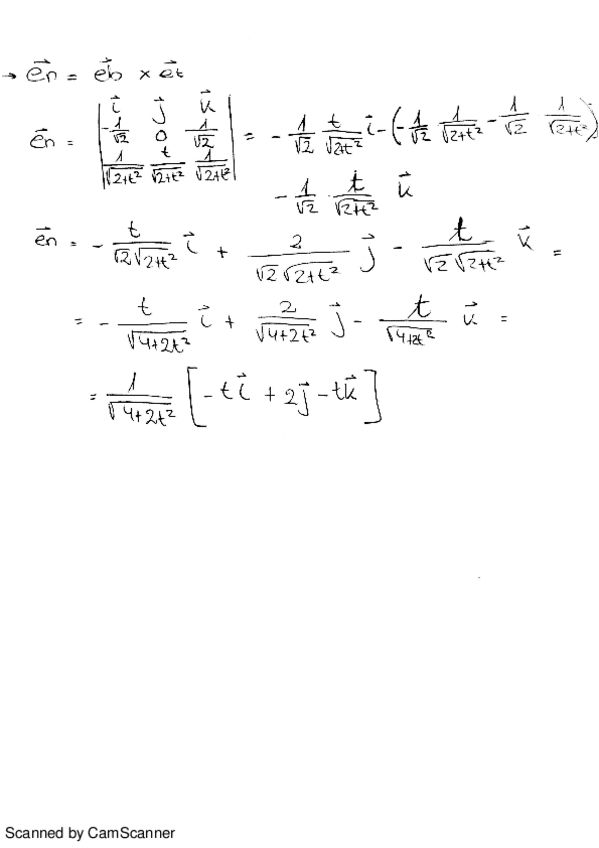 → e⃗n = e⃗b × e⃗t
e⃗n = | i⃗ j⃗ k⃗ ; -1/√2 0 1/√2 ; 1/√(2+t²) t/√(2+t²) 1/√(2+t²) | = - 1/√2 t/√(2+t²) i⃗ - (-1/√2 1/√(2+t²) - 1/√2 1/√(2+t²))
- 1/√2 · t/√(2+t²) k⃗
e⃗n = - t/(√2√(2+t²)) i⃗ + 2/(√2√(2+t²)) j⃗ - t/(√2√(2+t²)) k⃗ =
= - t/√(4+2t²) i⃗ + 2/√(4+2t²) j⃗ - t/√(4+2t²) k⃗ =
= 1/√(4+2t²) [-t i⃗ + 2j⃗ - t k⃗]
Scanned by CamScanner